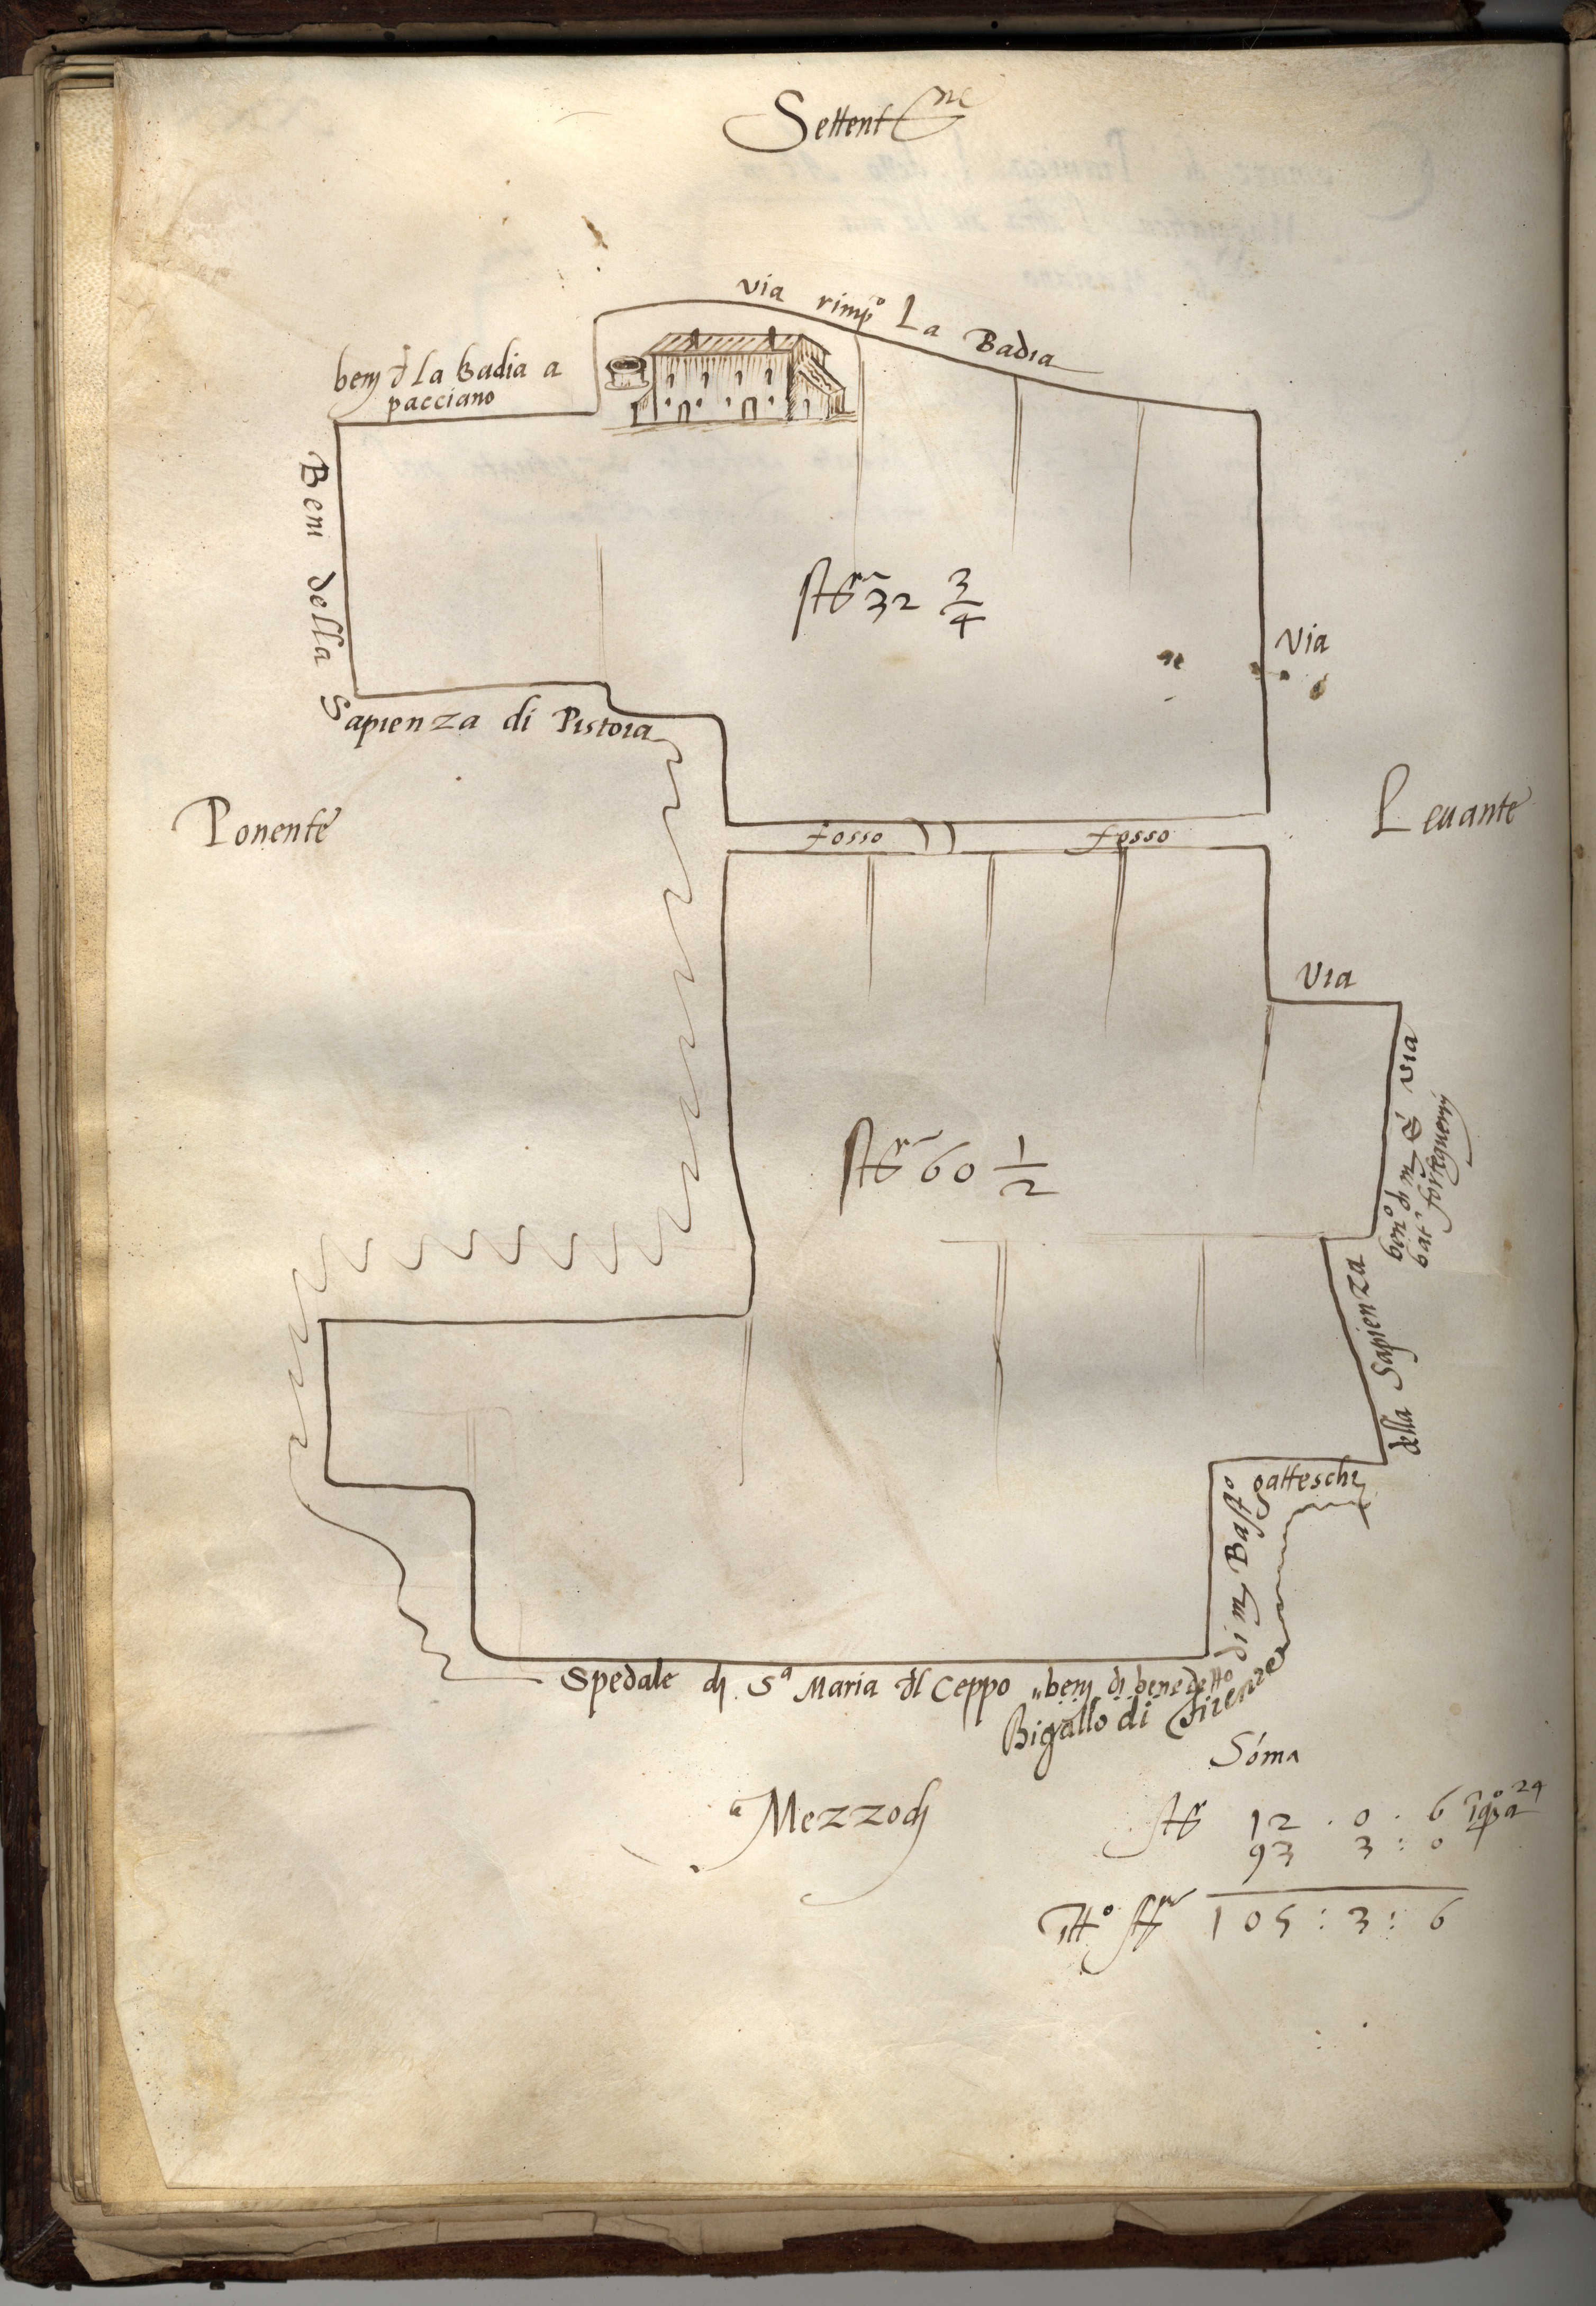 Settent^ne
via rimp^o La Badia
benj d la badia a
pacciano
Beni della
Sapienza di Pistoia
st^r 32 3/4
Via
Ponente
Levante
fosso fosso
Via
via
st^r 60 1/2
ben^o di m
bat^a forteguerrj
della Sapienza
gatteschi
di m Bast^o
Spedale dj S^a Maria dl Ceppo "benj dj benedetto
Bigallo di Firenze
Sóma
a Mezzodj
st^r 12 . 0 . 6
93 3 : 0
st^r 105 : 3 : 6